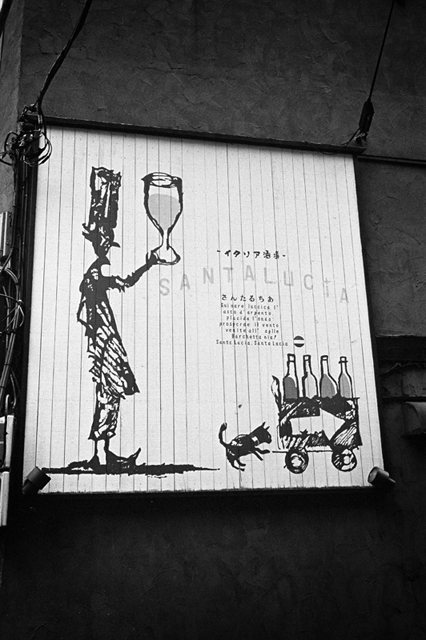 -イタリア酒房-
SANTALUCIA
さんたるちあ
Sul mare luccica l'
astro d'argento
placida l'onda
prosperde il vento
venite all' agile
Barchetta mia!
Santa Lucia. Santa Lucia